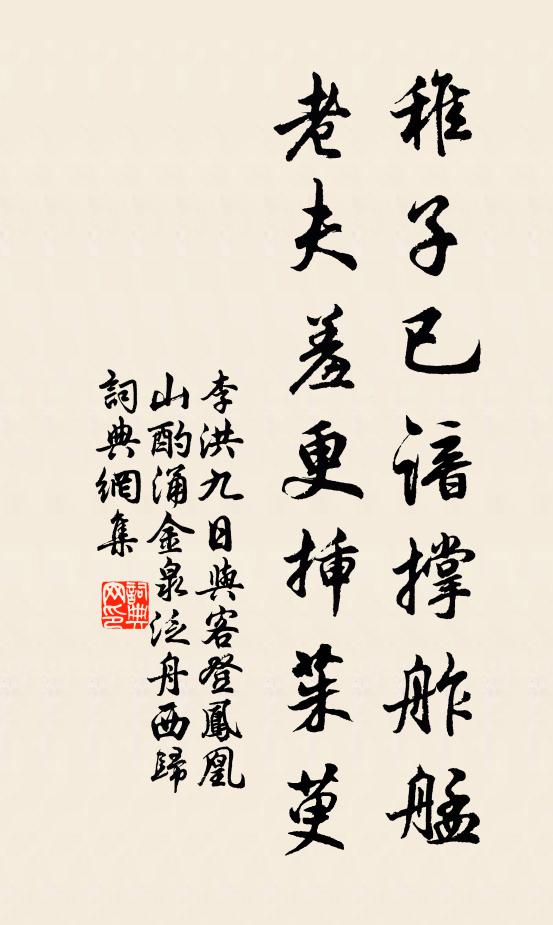 稚子已諳撐舴艋
老夫羞更插茱萸
李洪九日與客登鳳凰
山酌涌金泉泛舟西歸
詞典網集
詞典網印